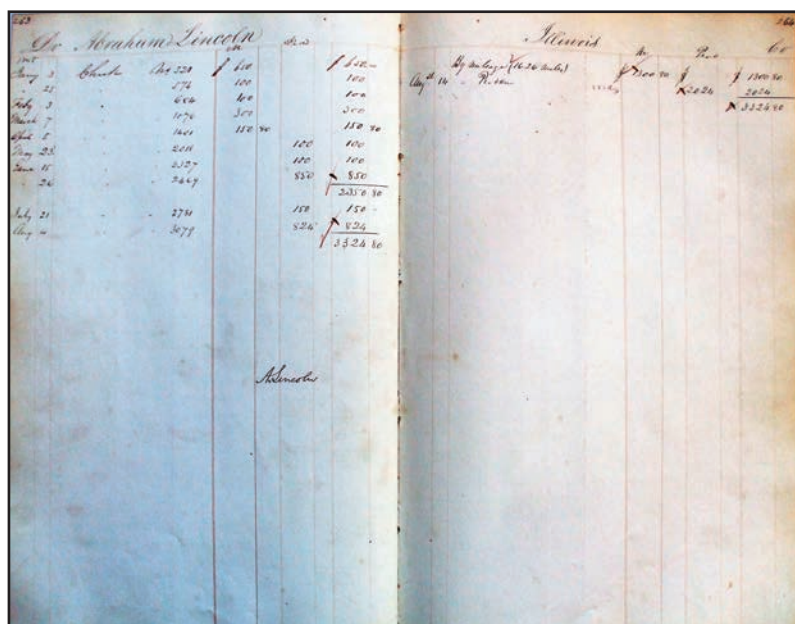 263
Dr Abraham Lincoln
M Per D
1848
Jany 3 Check No 221 $ 650 $ 650
" 28 " 574 100 100
Feby 3 " 684 100 100
March 7 " 1076 300 300
April 5 " 150 80 150 80
May 23 " 2011 100 100
June 15 " 2327 100 100
" 26 " 2469 850 850
2350 80
July 21 " 2781 150 150
Aug 4 " 3079 824 824
3324 80
A Lincoln
264
Illinois Cr
By mileage (1626 miles) $ 1300 80 $ $ 1300 80
Augt 14 2024 2024
$ 3324 80